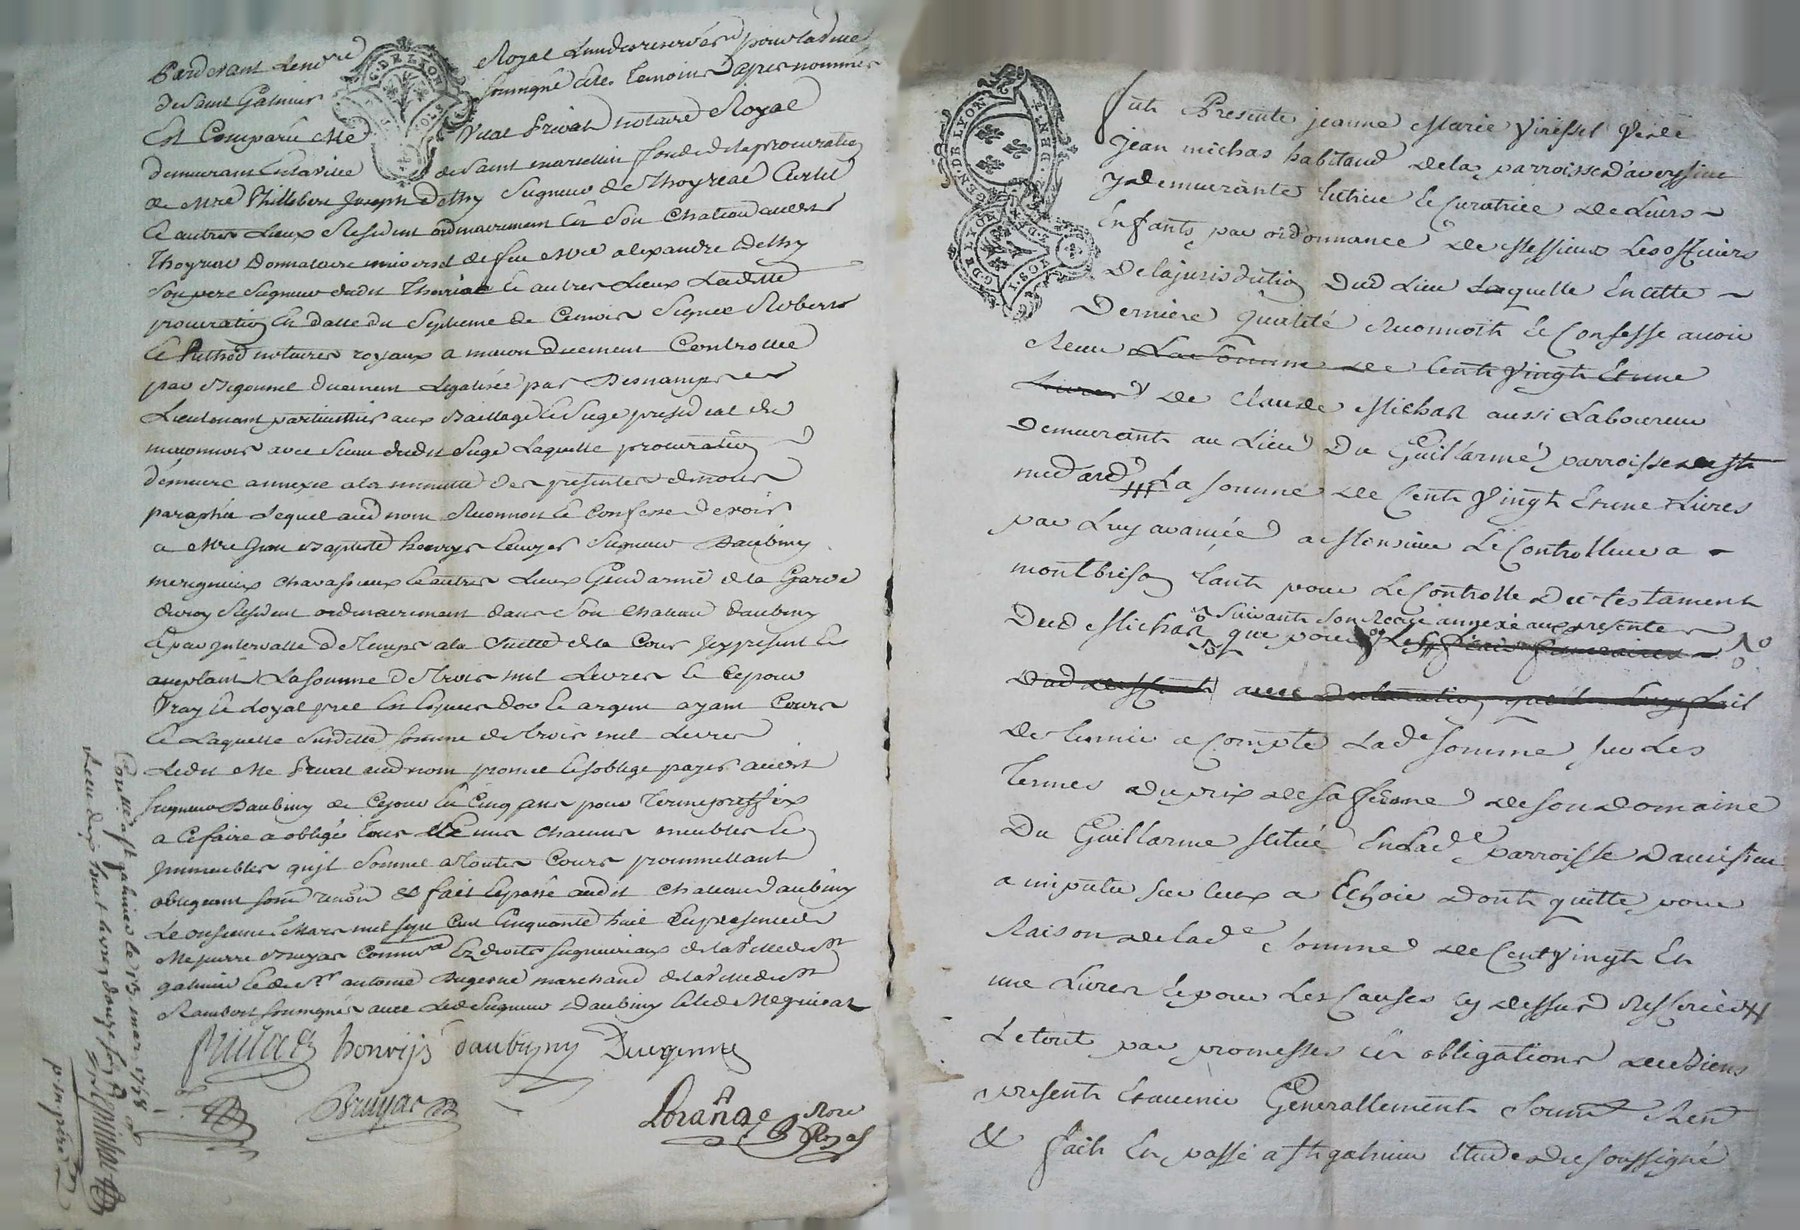 Pardevant Le no.re Royal Rundesreservé pour la ville
de Saint Galmier soussigné & les temoins apres nommés
Est Comparu Me Vital Privat notaire Royal
demeurant En la ville de Saint marcellin fondé de la procuration
de mre Philibert Joseph Dethy Seigneur de Thoyriat Curtil
& autres Lieux Resident ordinairement En Son Chateau
Thoyriat Donnataire universel de feu mre alexandre Dethy
Son pere Seigneur dudit Thoiriat & autres Lieux Ladite
procuration En datte du Septieme de Ce mois Signée Roberts
& notaires royaux a macon duement Controllée
par duement Legalisée par
Lieutenant particullier aux Baillage & Siege presidial de
maconnois avec Sceau dudit Siege Laquelle procuration
demeure annexée a la minutte des presentes de nous
paraphée Lequel aud nom Reconnoit & Confesse devoir
a mre Jean Baptiste honvijs Ecuyer Seigneur Daubiny
merignieux Chavassieux & autres Lieux Gendarme de la Garde
du roy Resident ordinairement dans Son Chateau daubiny
& par Intervalle de temps a la Suitte de la Cour Icy present &
aceptant La Somme de Trois mil Livres & Ce pour
Vray & Loyal pret En Especes d'or & argent ayant Cours
& Laquelle Susditte Somme de trois mil Livres
Ledit Me Privat aud nom promet & s'oblige payer audit
Seigneur Daubiny de Ce jour En Cinq ans pour Terme prefix
a Ce faire a obligé Tous Et Uns Chacuns meubles &
Immeubles qu'il Soumet a Toutes Cours prommettant
obligeant soum renon & fait & passé audit Chateau Daubiny
Le onsieme Mars mil Sept Cent Cinquante huit En presence de
Me pierre Bruyas Commre Ez droits Seigneuriaux de la Ville de St
galmier & de Sr antoine Dugenne marchand de la Ville de St
Rambert soussignés avec Led Seigneur Daubiny & led Me privat
Privat honvijs daubigny Dugenne
Bruyas
Lorañge Nore Royal
Conllé a St galmier le 13 mars 1758
Reçu dix huit livres douze sols
Jean Presente jeanne Marie Viressel Veuve
Jean michas habitand de la parroisse d'aveyzieu
y demeurante tutrice & Curatrice de Leurs
Enfants par ordonnance de Messieurs Les officiers
De la jurisdiction Dud Lieu Laquelle En cette
Derniere qualité Reconnoit & Confesse avoir
Receu La Somme de Cent Vingt Et une
Livres de Claude Michas aussi Laboureur
Demeurant au Lieu Du Guillarme parroisse de St
medard La somme de Cent Vingt Et une Livres
par Luy avancée a Monsieur Le Controlleur a
montbrison Tant pour Le Controlle du testament
suivant Son Reçu annexé aux presentes
Dud Michas que pour Les frais funeraires
Dud deffunt avec Declaration qu'il Luy fait
de tenir a Compte Lade somme sur Les
Termes du prix de sa ferme de son domaine
Du Guillarme scitué En Lade parroisse D'aveisieu
a imputer sur Ceux a Echoir Dont quitte pour
Raison de lade Somme de Cent Vingt Et
une Livres & pour Les Causes cy dessus Resferées
Le tout par promesses & obligations de ses Biens
present & avenir Generallement soum Ren
& fait Et passé a St galmier Etude du soussigné